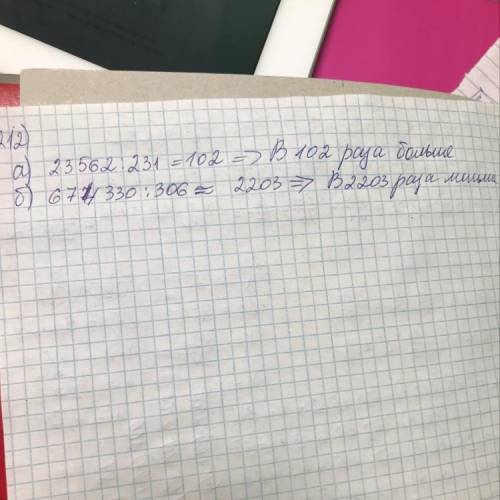 212)
а) 23562:231=102 => В 102 раза больше
б) 674330:306≈ 2203 => В 2203 раза